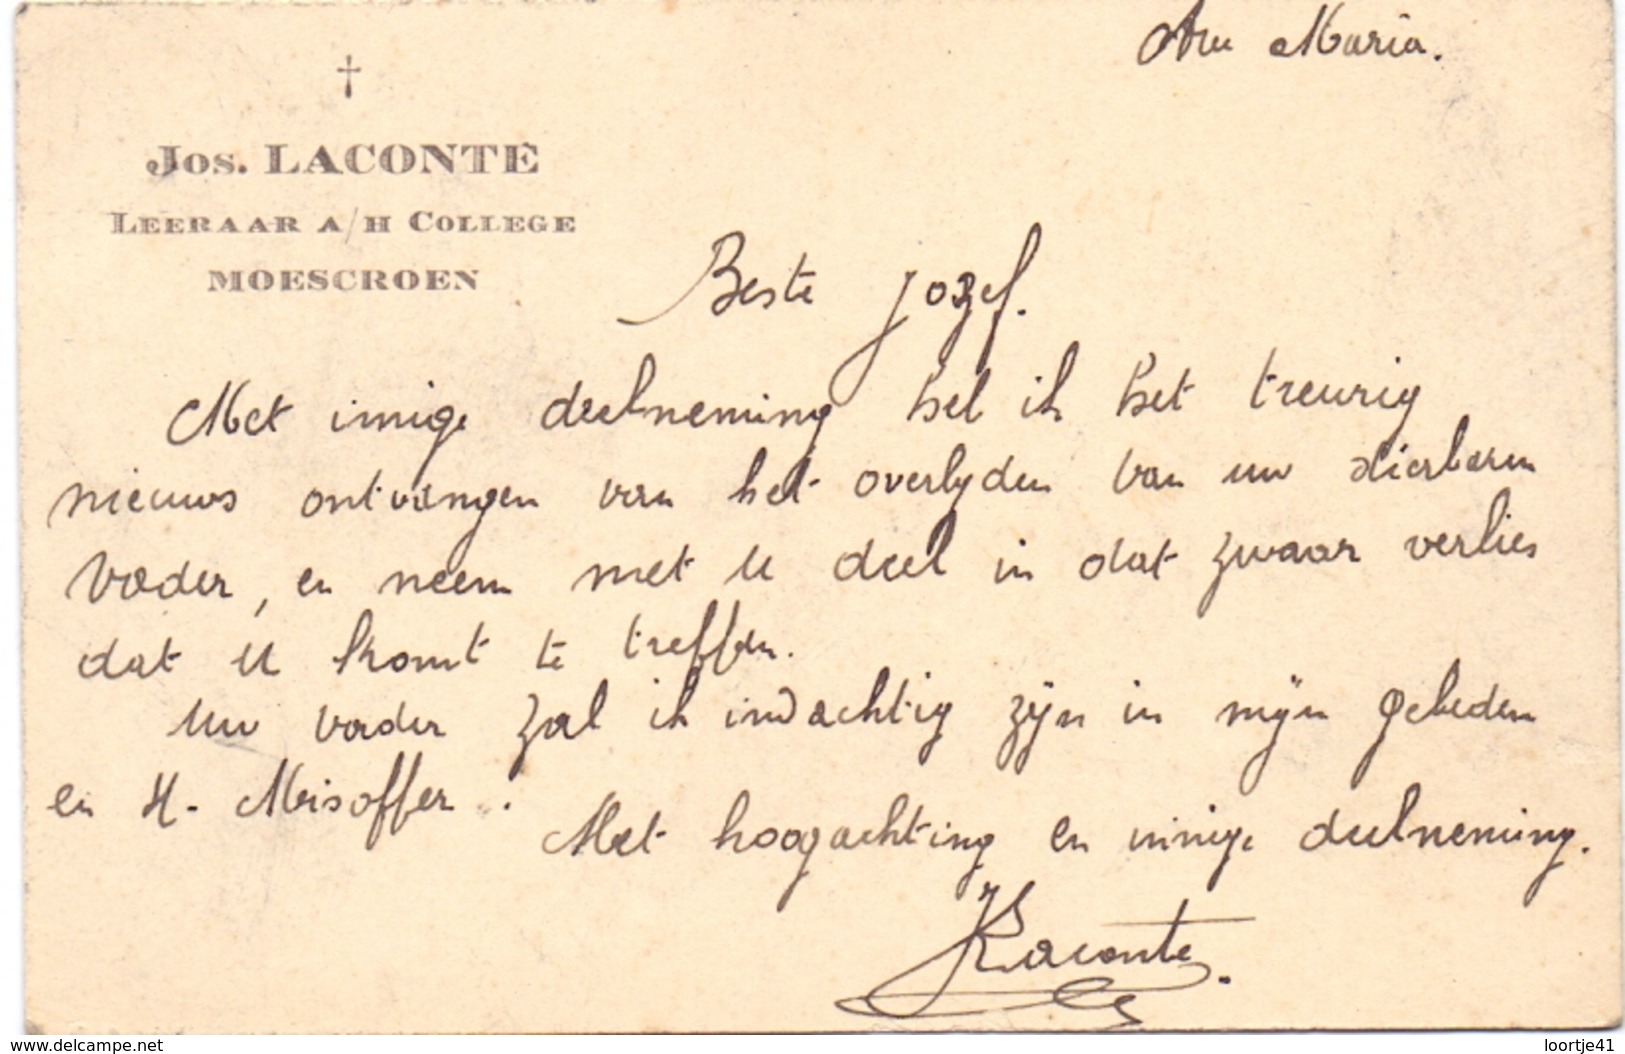 Ave Maria.
†
Jos. LACONTE
LEERAAR A/H COLLEGE
MOESCROEN
Beste Jozef.
Met innige deelneming heb ik het treurig
nieuws ontvangen van het overlyden van uw dierbaren
Vader, en neem met U deel in dat zwaar verlies
dat U komt te treffen.
Uw vader zal ik indachtig zijn in mijn gebeden
en H. Misoffer.
Met hoogachting en innige deelneming.
JLaconte.
www.delcampe.net
loortje41